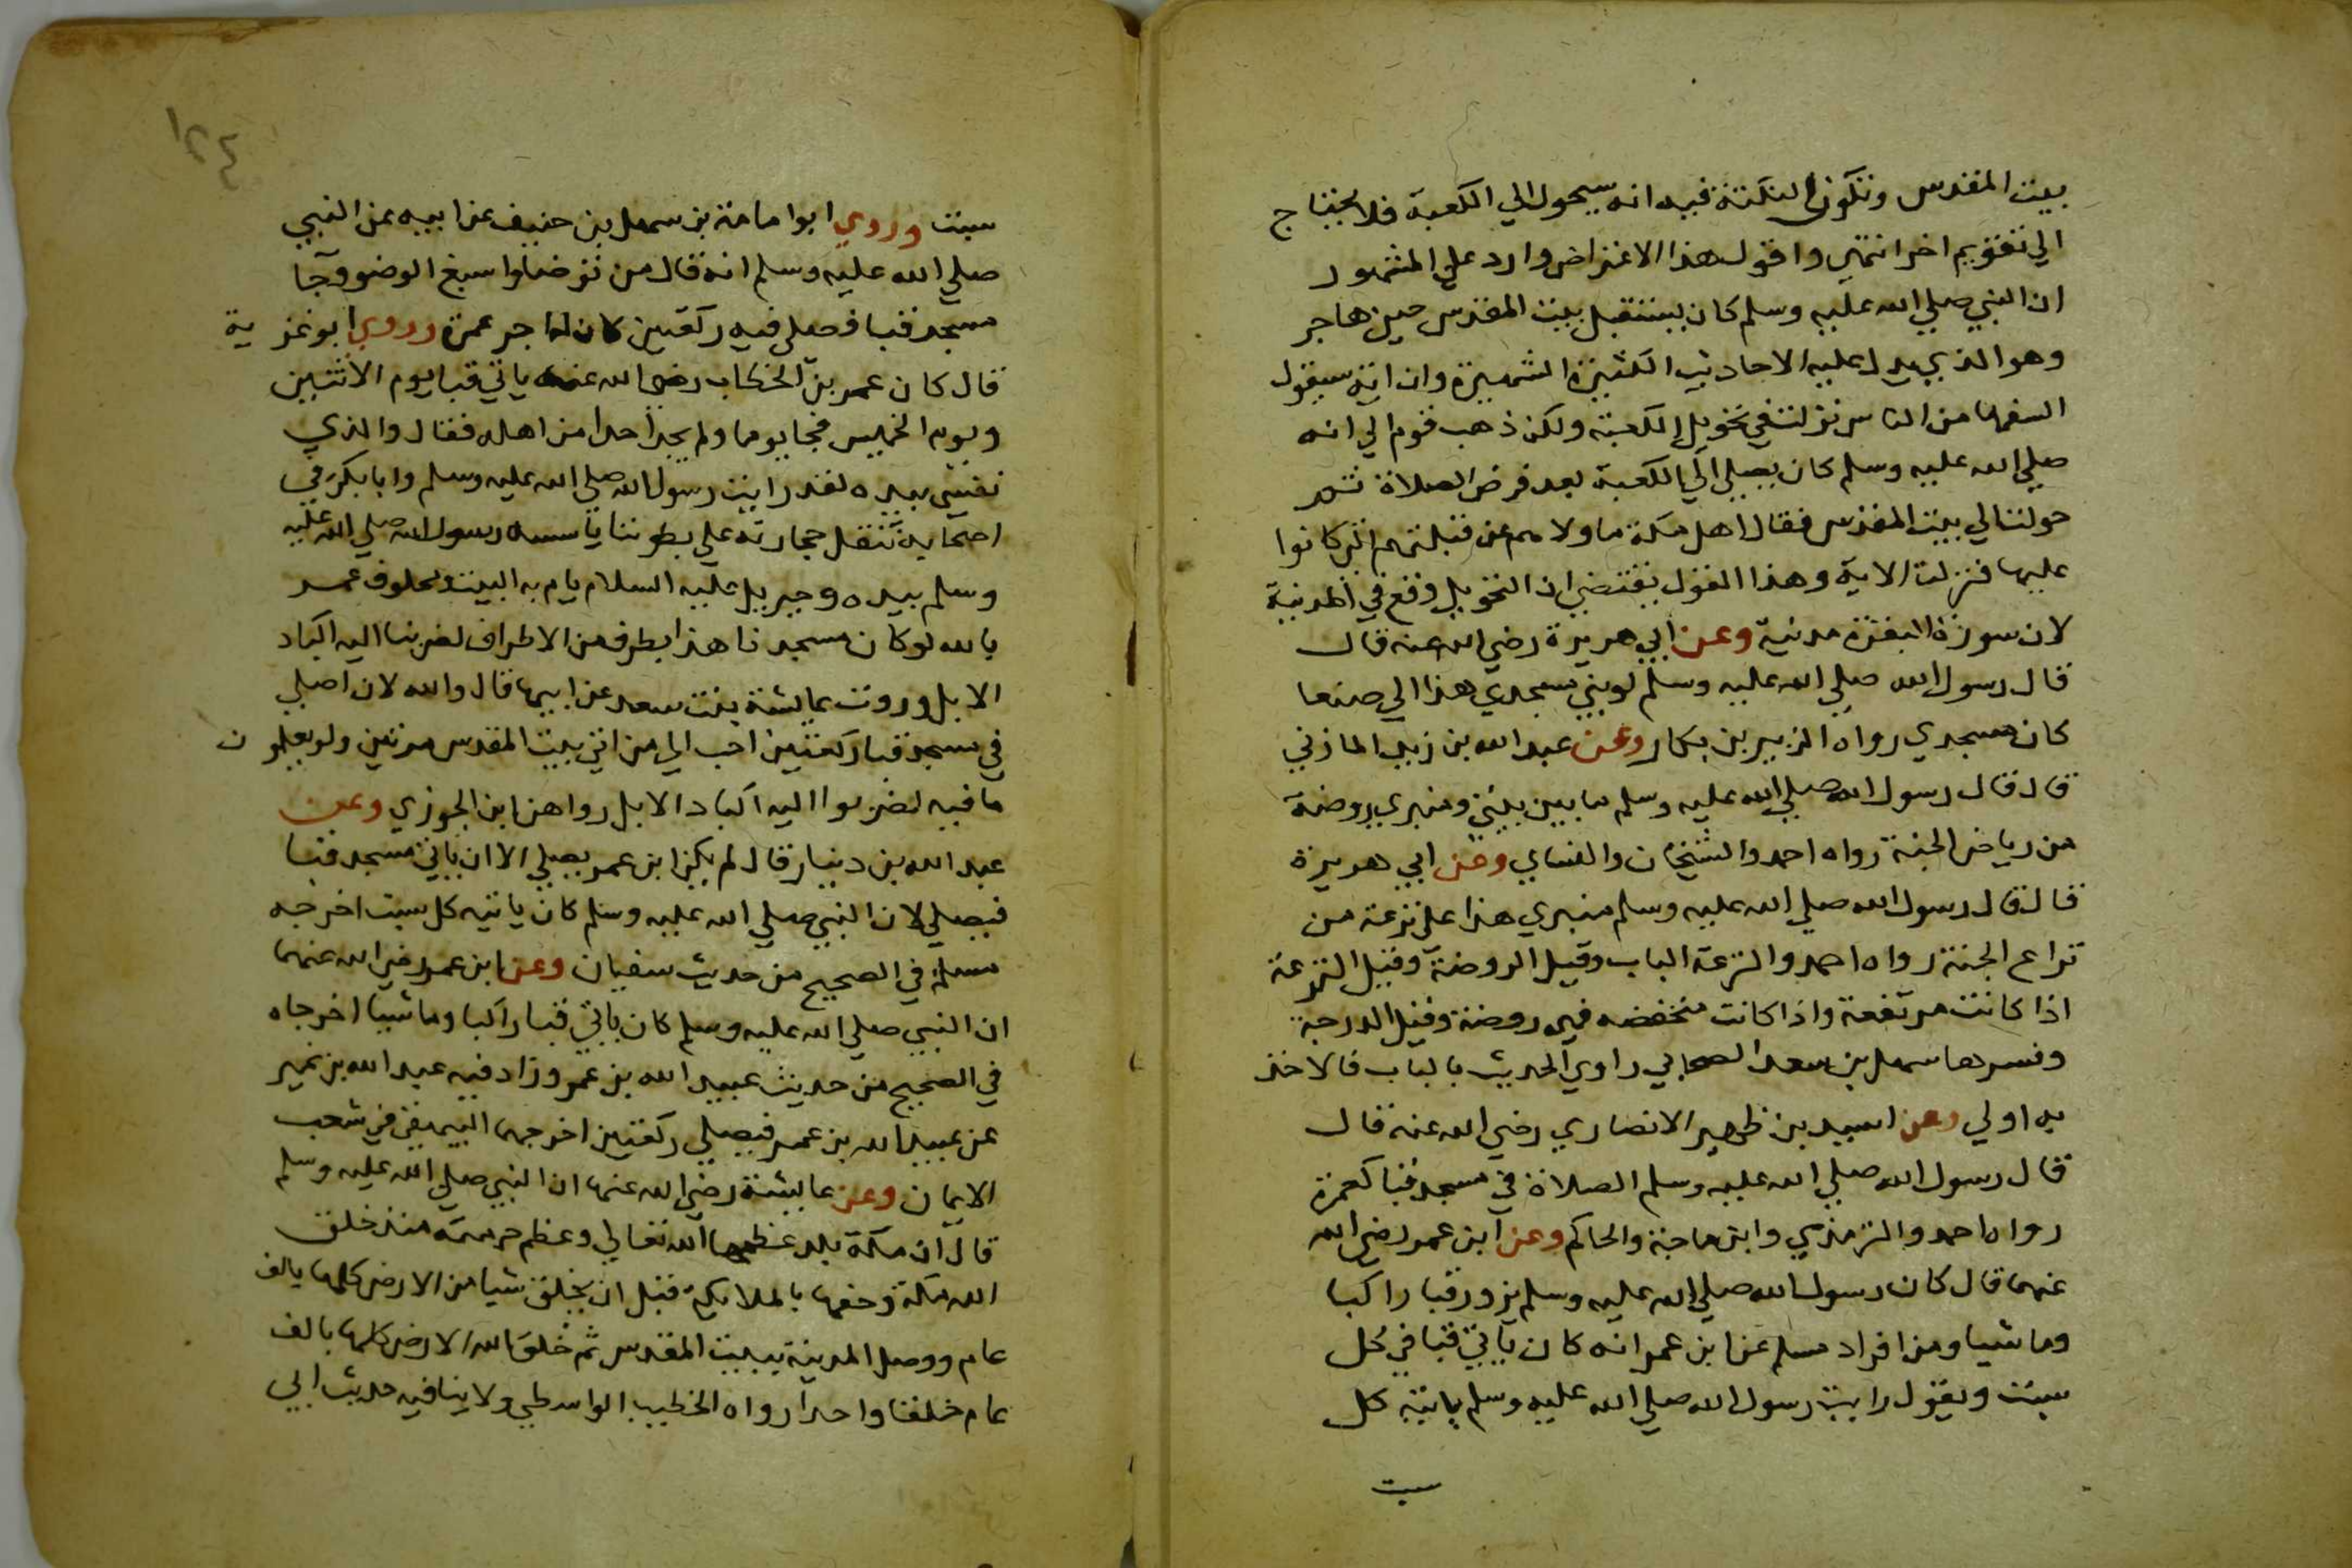 بيت المقدس وتكون النكتة فيه انه سيحول الي الكعبة فلا يحتاج
الي تقويم اخر انتهي واقول هذا الاعتراض وارد علي المشهور
ان النبي صلي الله عليه وسلم كان يستقبل بيت المقدس حين هاجر
وهو الذي يدل عليه الاحاديث الكثيرة الشهيرة وان اية سيقول
السفها من الناس نزلت في تحويل الكعبة ولكن ذهب قوم الي انه
صلي الله عليه وسلم كان يصلي الي الكعبة بعد فرض الصلاة ثم
حولت الي بيت المقدس فقال اهل مكة ما ولاهم عن قبلتهم التي كانوا
عليها فنزلت الاية وهذا القول يقتضي ان التحويل وقع في المدينة
لان سورة البقرة مدنية وعن ابي هريرة رضي الله عنه قال
قال رسول الله صلي الله عليه وسلم لو بني مسجدي هذا الي صنعا
كان مسجدي رواه الزبير بن بكار وعن عبد الله بن زيد المازني
قال قال رسول الله صلي الله عليه وسلم ما بين بيتي ومنبري روضة
من رياض الجنة رواه احمد والشيخان والنساي وعن ابي هريرة
قال قال رسول الله صلي الله عليه وسلم منبري هذا علي ترعة من
تراع الجنة رواه احمد والترعة الباب وقيل الروضة وقيل الترعة
اذا كانت مرتفعة واذا كانت منخفضه فهي روضة وقيل الدرجة
وفسرها سهل بن سعد الصحابي راوي الحديث بالباب فالاخذ
به اولي وعن اسيد بن ظهير الانصاري رضي الله عنه قال
قال رسول الله صلي الله عليه وسلم الصلاة في مسجد قبا كعمرة
رواه احمد والترمذي وابن ماجة والحاكم وعن ابن عمر رضي الله
عنهما قال كان رسول الله صلي الله عليه وسلم يزور قبا راكبا
وماشيا ومن افراد مسلم عن ابن عمر انه كان ياتي قبا في كل
سبت ويقول رايت رسول الله صلي الله عليه وسلم ياتيه كل
سبت
١٢٤
سبت وروي ابوامامة بن سهل بن حنيف عن ابيه عن النبي
صلي الله عليه وسلم انه قال من توضا واسبغ الوضو وجا
مسجد قبا فصلي فيه ركعتين كان له اجر عمرة وروي ابو غزية
قال كان عمر بن الخطاب رضي الله عنه ياتي قبا يوم الاثنين
ويوم الخميس فجا يوما ولم يجد احدا من اهله فقال والذي
نفسي بيده لقد رايت رسول الله صلي الله عليه وسلم وابا بكر في
اصحابه تنقل حجارته علي بطوننا ياسسه رسول الله صلي الله عليه
وسلم بيده وجبريل عليه السلام يام به البيت ومحلوف عمر
بالله لو كان مسجدنا هذا بطرف من الاطراف لضربنا اليه اكباد
الابل وروت عايشة بنت سعد عن ابيها قال والله لان اصلي
في مسجد قبا ركعتين احب الي من اتي بيت المقدس مرتين ولو يعلمون
ما فيه لضربوا اليه اكباد الابل رواهن ابن الجوزي وعن
عبد الله بن دينار قال لم يكن ابن عمر يصلي الا ان ياتي مسجد قبا
فيصلي لان النبي صلي الله عليه وسلم كان ياتيه كل سبت اخرجه
مسلم في الصحيح من حديث سفيان وعن ابن عمر رضي الله عنهما
ان النبي صلي الله عليه وسلم كان ياتي قبا راكبا وماشيا اخرجاه
في الصحيح من حديث عبيد الله بن عمر وزاد فيه عبد الله بن نمير
عن عبيد الله بن عمر فيصلي ركعتين اخرجهما البيهقي في شعب
الايمان وعن عايشة رضي الله عنها ان النبي صلي الله عليه وسلم
قال ان مكة بلد عظمها الله تعالي وعظم حرمته منذ خلق
الله مكة وحفها بالملايكة قبل ان يخلق شيا من الارض كلها بالف
عام ووصل المدينة ببيت المقدس ثم خلق الله الارض كلها بالف
عام خلقا واحدا رواه الخطيب الواسطي ولا ينافيه حديث ابي